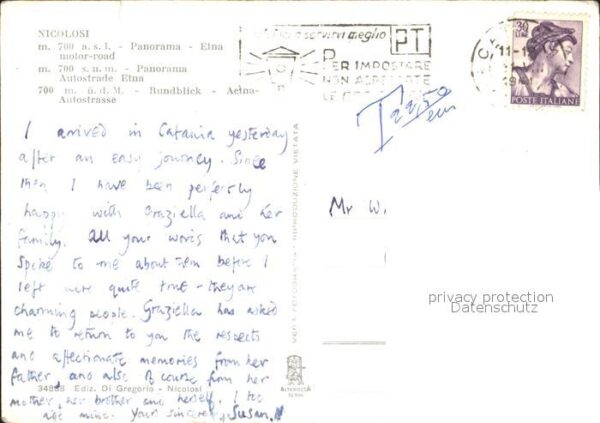 NICOLOSI
m. 700 a.s.l. - Panorama - Etna
motor-road
m. 700 s.n.m. - Panorama
Autostrade Etna
700 m. ü.d.M. - Rundblick - Aetna-
Autostrasse
servirvi meglio
PT
PER IMPOSTARE
NON ASPETTATE
LE
11-1
30 LIRE
POSTE ITALIANE
T 22,50
cm
I arrived in Catania yesterday
after an easy journey. Since
then I have been perfectly
happy with Graziella and her
family. All your words that you
spoke to me about them before I
left were quite true - they are
charming people. Graziella has asked
me to return to you the respects
and affectionate memories from her
father, and also of course from her
mother, her brother and herself. I too
add mine. Your sincere, Susan.
VERA FOTOGRAFIA - RIPRODUZIONE VIETATA
Mr W.
privacy protection
Datenschutz
34888 Ediz. Di Gregorio - Nicolosi